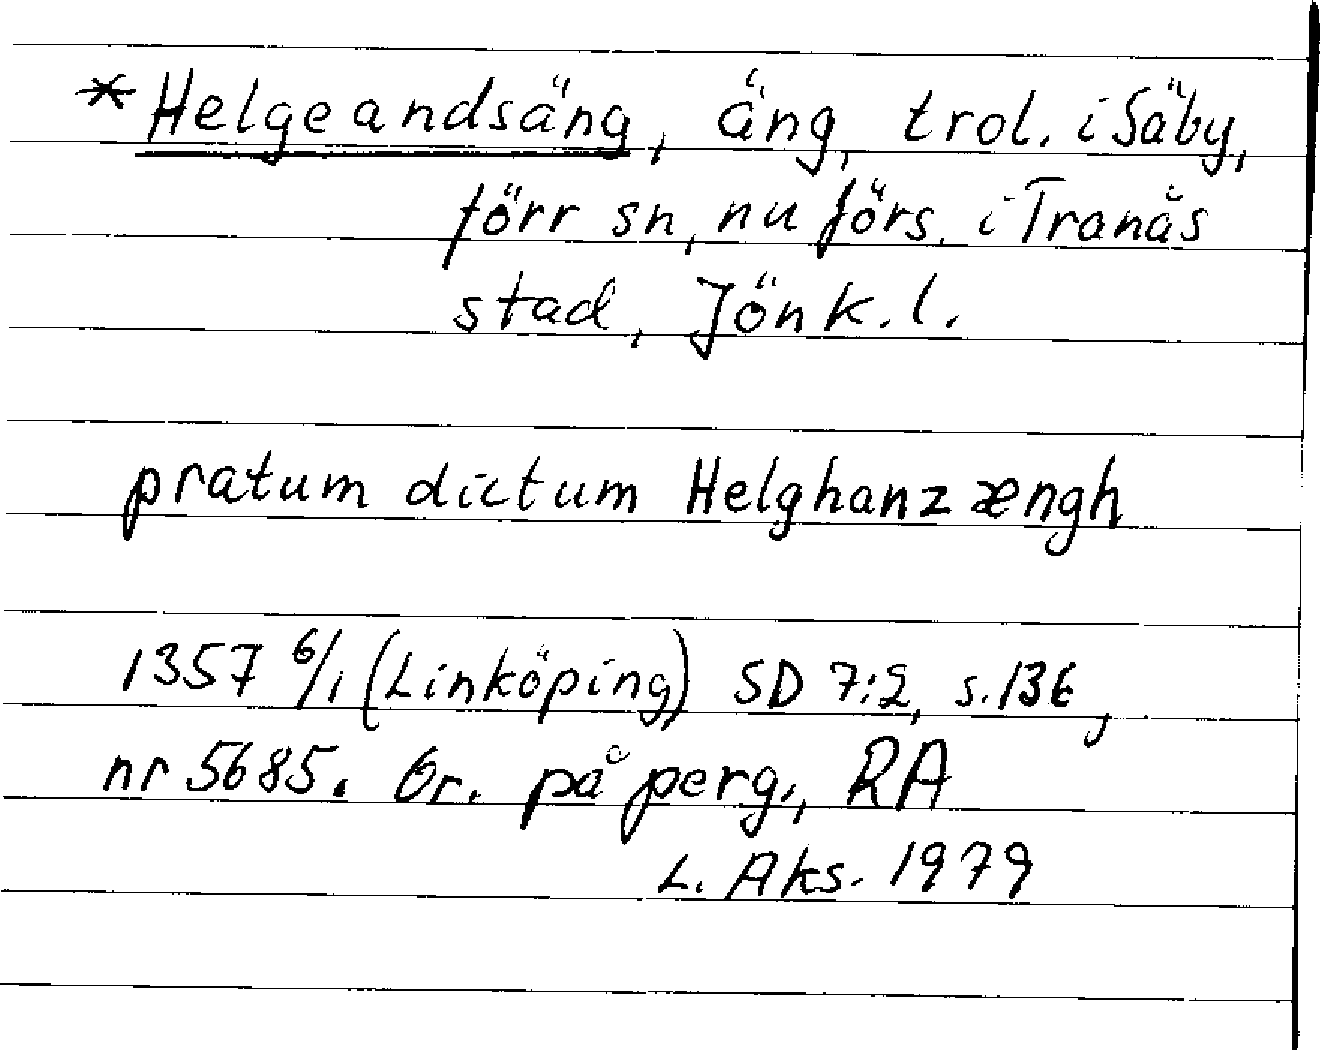 *Helgeandsäng, äng, trol. i Säby,
förr sn, nu förs. i Tranås
stad, Jönk. l.
pratum dictum Helghanzængh
1357 6/1 (Linköping) SD 7:2, s. 136,
nr 5685. Or. på perg., RA
L. Aks. 1979